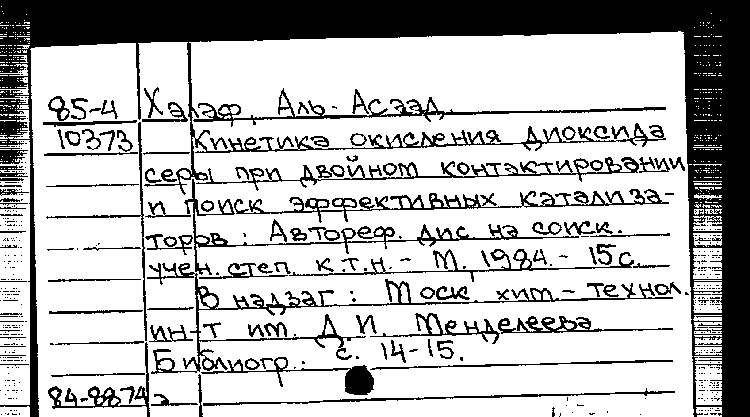 85-4 Халаф, Аль-Асаад.
10373 Кинетика окисления диоксида
серы при двойном контактировании
и поиск эффективных катализа-
торов: Автореф. дис на соиск.
учен. степ. к.т.н. - М., 1984. - 15с.
В надзаг: Моск. хим-технол.
ин-т им. Д.И. Менделеева
Библиогр.: с. 14-15.
84-8874а